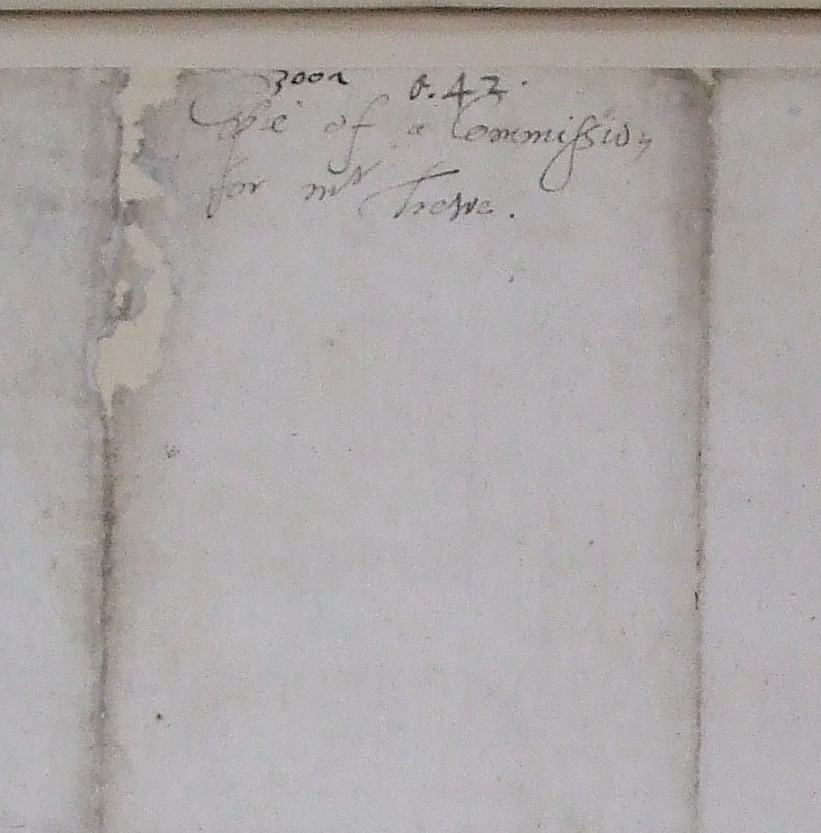 o.42.
Copie of a Commission
for mr Trowe.